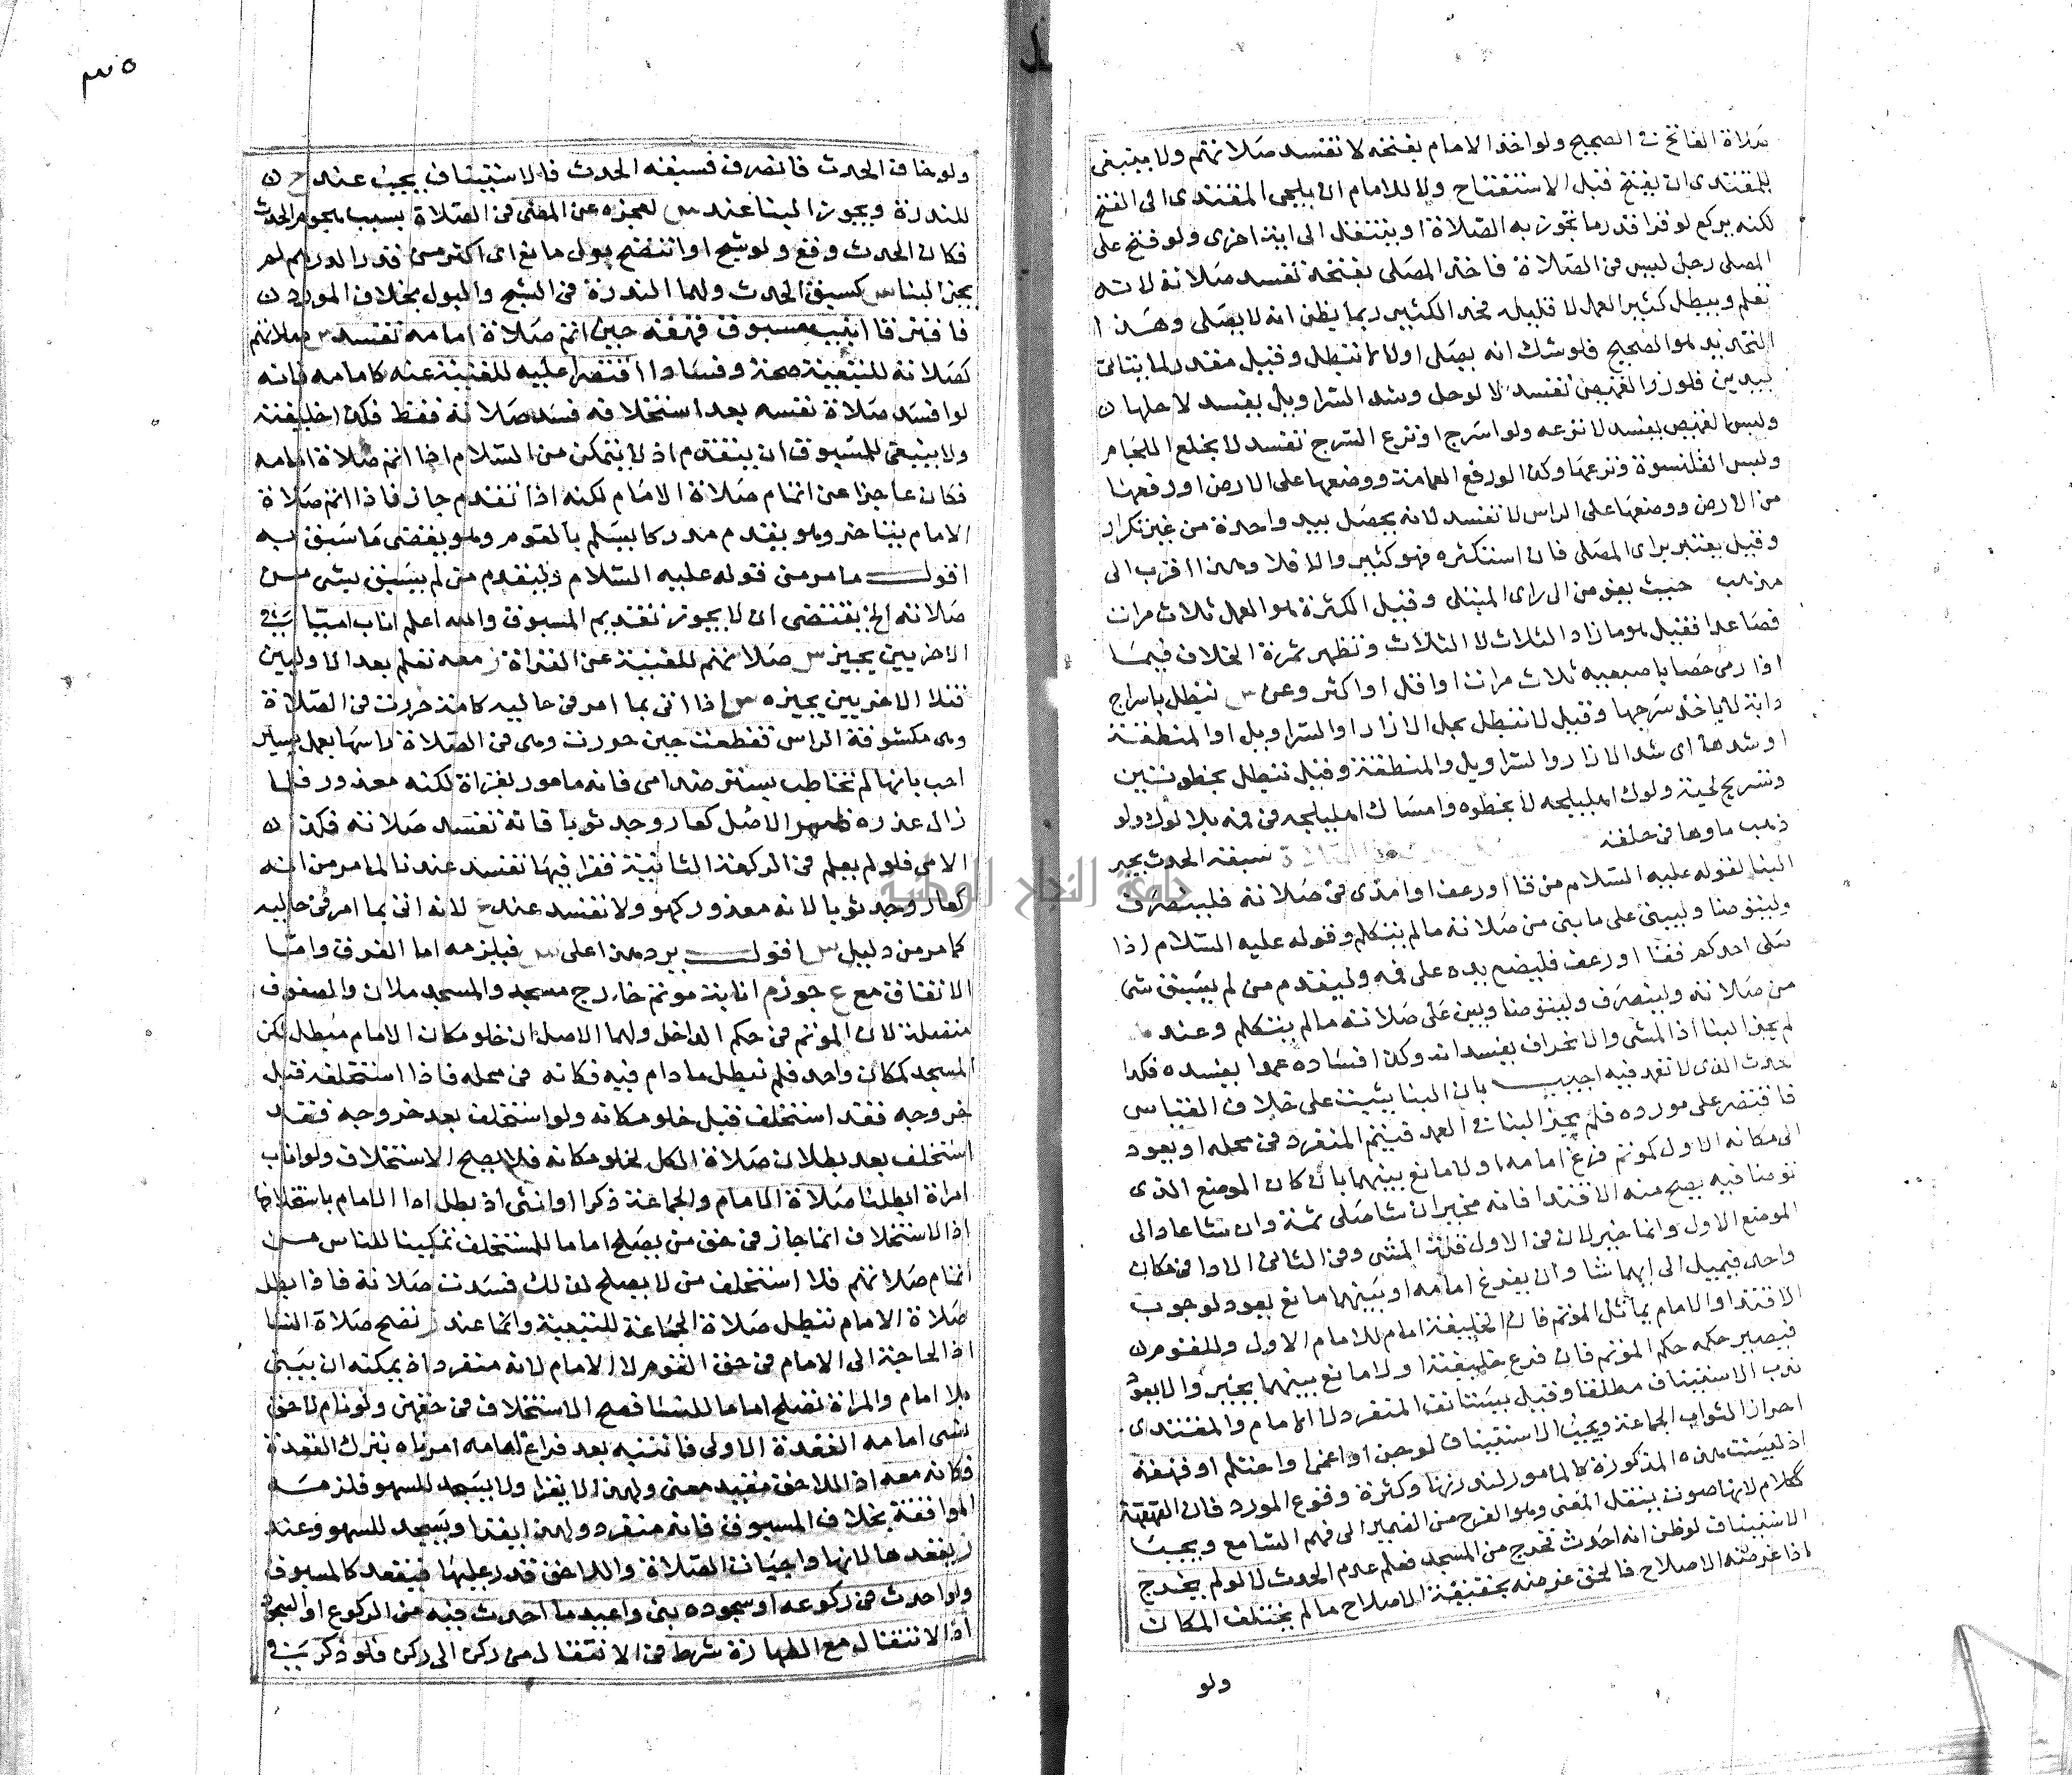 صلاة الفاتح في الصحيح ولو اخذ الامام بفتحه لا تفسد صلاتهم ولا ينبغي
للمقتدى ان يفتح قبل الاستفتاح ولا للامام ان يلجى المقتدى الى الفتح
لكنه يركع لو قرا قدر ما تجوز به الصلاة او ينتقل الى اية اخرى ولو فتح على
المصلى رجل ليس في الصلاة فاخذ المصلى بفتحه تفسد صلاته لانه
تعلم ويبطل كثير العمل لا قليله فحد الكثير ربما يظن انه لا يصلى وهذا
التحديد هو الصحيح فلو شك انه يصلى اولا لا تبطل وقيل مقدر لما يتاتى
بيدين فلو زر القميص تفسد لا لو حل وشد السراويل يفسد لا حلها
ولبس القميص يفسد لا نزعه ولو اسرج او نزع السرج تفسد لا بخلع اللجام
ولبس القلنسوة ونزعها وكذا لو رفع العمامة ووضعها على الارض او رفعها
من الارض ووضعها على الراس لا تفسد لانه يحصل بيد واحدة من غير تكرار
وقيل يعتبر براى المصلى فان استكثره فهو كثير والا فلا وهذا اقرب الى
مذهب حيث يفوض الى راى المبتلى وقيل الكثرة هو العمل ثلاث مرات
فصاعدا فقيل هو ما زاد الثلاث لا الثلاث وتظهر ثمرة الخلاف فيما
اذا رمى حصا باصبعيه ثلاث مرات او اقل او اكثر وعن س تبطل باسراج
دابة لا باخذ سرجها وقيل لا تبطل بحل الازار او السراويل او المنطقة
او شدها اى شد الازار والسراويل والمنطقة وقيل تبطل بخطوتين
وتسريح لحية ولوك اهليلجه لا بخطوه وامساك اهليلجه في فمه بلا لوك ولو
ذهب ماوها في حلقه سبقه الحدث يجيز
البنا لقوله عليه السلام من قا او رعف او امذى في صلاته فلينصرف
وليتوضا وليبنى على ما بنى من صلاته ما لم يتكلم وقوله عليه السلام اذا
صلى احدكم فقا او رعف فليضع يده على فمه وليقدم من لم يسبق شى
من صلاته ولينصرف وليتوضا ويبن على صلاته ما لم يتكلم وعند
لم يجز البنا اذ المشى والانحراف يفسدانه وكذا افساده عمدا يفسده فكذا
حدث الذى لا تعمد فيه اجيب بان البنا يثبت على خلاف القياس
فاقتصر على مورده فلم يجز البنا في العمد فيتم المنفرد في محله او يعود
الى مكانه الاول كموتم فرغ امامه اولا مانع بينهما بان كان الموضع الذى
توضا فيه يصح منه الاقتدا فانه مخير ان شا صلى ثمة وان شا عاد الى
الموضع الاول وانما خير لان في الاول قلة المشى وفي الثانى الادا في مكان
واحد فيميل الى ايهما شا وان يفرغ امامه او بينهما مانع يعود لوجوب
الاقتدا والامام يماثل الموتم فان الخليفة امام للامام الاول وللقوم
فيصير حكمه حكم الموتم فان فرغ خليفته اولا مانع بينهما يخير والا يعود
ندب الاستيناف مطلقا وقيل يستانف المنفرد لا الامام والمقتدى
احراز الثواب الجماعة ويجب الاستيناف لو جن او اغمى او احتلم او قهقه
اذ ليست هذه المذكورة كالمامور لندرتها وكثرة وقوع المورد فان القهقهة
ككلام لانها صوت ينقل المعنى وهو الفرح من الضمير الى فهم السامع ويجب
الاستيناف لو ظن انه احدث فخرج من المسجد فعلم عدم الحدث لا لو لم يخرج
اذ غرضه الاصلاح فالحق غرضه بحقيقة الاصلاح ما لم يختلف المكان
ولو
ولو خاف الحدث فانصرف فسبقه الحدث فالاستيناف يجب عند ح
للندرة ويجوز البنا عند س لعجزه عن المضى في الصلاة بسبب هجوم الحدث
فكان الحدث وقع ولو شج او انتضح بول مانع اى اكثر من قدر الدرهم لم
يجز البنا س كسبق الحدث ولهما الندرة في الشج والبول بخلاف المورد
فافترقا انيب مسبوق فقهقه حين اتم صلاة امامه تفسد س صلاتهم
كصلاته للتبعية صحة وفسادا اقتصرا عليه للغنية عنه كامامه فانه
لو افسد صلاة نفسه بعد استخلافه فسد صلاته فقط فكذا خليفته
ولا ينبغى للمسبوق ان يتقدم اذ لا يتمكن من السلام اذا اتم صلاة امامه
فكان عاجزا عن اتمام صلاة الامام لكنه اذا تقدم جاز فاذا اتم صلاة
الامام يتاخر وهو يقدم مدركا يسلم بالقوم وهو يقضى ما سبق به
اقول ما مر من قوله عليه السلام وليقدم من لم يسبق بشى من
صلاته الخ يقتضى ان لا يجوز تقديم المسبوق والله اعلم اناب اميا في
الاخريين يجيز س صلاتهم للغنية عن القراة ز معه تعلم بعد الاوليين
فتلا الاخريين يجيزه س اذا اتى بما امر في حاليه كامة حررت في الصلاة
وهى مكشوفة الراس فغطت حين حررت وهى في الصلاة راسها بعمل يسير
اجيب بانها لم تخاطب بستر ضد امى فانه مامور بقراة لكنه معذور فلما
زال عذره ظهر الاصل كعار وجد ثوبا فانه تفسد صلاته فكذا
الامى فلو لم يعلم في الركعة الثانية فقرا فيها تفسد عندنا لما مر من انه
كعار وجد ثوبا لانه معذور كهو ولا تفسد عند ح لانه اتى بما امر في حاليه
كما مر من دليل س اقول يرد هذا على س فيلزمه اما الفرق واما
الاتفاق مع ع جوزم انابة موتم خارج مسجد والمسجد ملان والصفوف
متصلة لان الموتم في حكم الداخل ولهما الاصل ان خلو مكان الامام مبطل لكن
المسجد كمكان واحد فلم تبطل ما دام فيه فكانه في محله فاذا استخلف قبل
خروجه فقد استخلف قبل خلو مكانه ولو استخلف بعد خروجه فقد
استخلف بعد بطلان صلاة الكل لخلو مكانه فلا يصح الاستخلاف ولو اناب
امراة ابطلنا صلاة الامام والجماعة ذكرا او انثى اذ بطل ادا الامام باستخلافها
اذ الاستخلاف انما جاز في حق من يصلح اماما للمستخلف تمكينا للناس من
اتمام صلاتهم فلا استخلف من لا يصلح لذلك فسدت صلاته فاذا بطل
صلاة الامام تبطل صلاة الجماعة للتبعية وانما عند ز تصح صلاة النسا
اذ الحاجة الى الامام في حق القوم لا الامام لانه منفرد اذ يمكنه ان يبنى
بلا امام والمراة تصلح اماما للنسا فصح الاستخلاف في حقهن ولو نام لاحق
نسى امامه القعدة الاولى فانتبه بعد فراغ امامه امرناه بترك القعدة
فكانه معه اذ اللاحق مقيد معنى ولهذا لا يقرا ولا يسجد للسهو فلزمه
الموافقة بخلاف المسبوق فانه منفرد ولهذا يقرا ويسجد للسهو وعند
ز يقعدها لانها واجبات الصلاة واللاحق قدر عليها فيقعد كالمسبوق
ولو احدث في ركوعه او سجوده بنى واعيد ما احدث فيه من الركوع او السجود
اذ الانتقال مع الطهارة شرط في الانتقال من ركن الى ركن فلو ذكر في